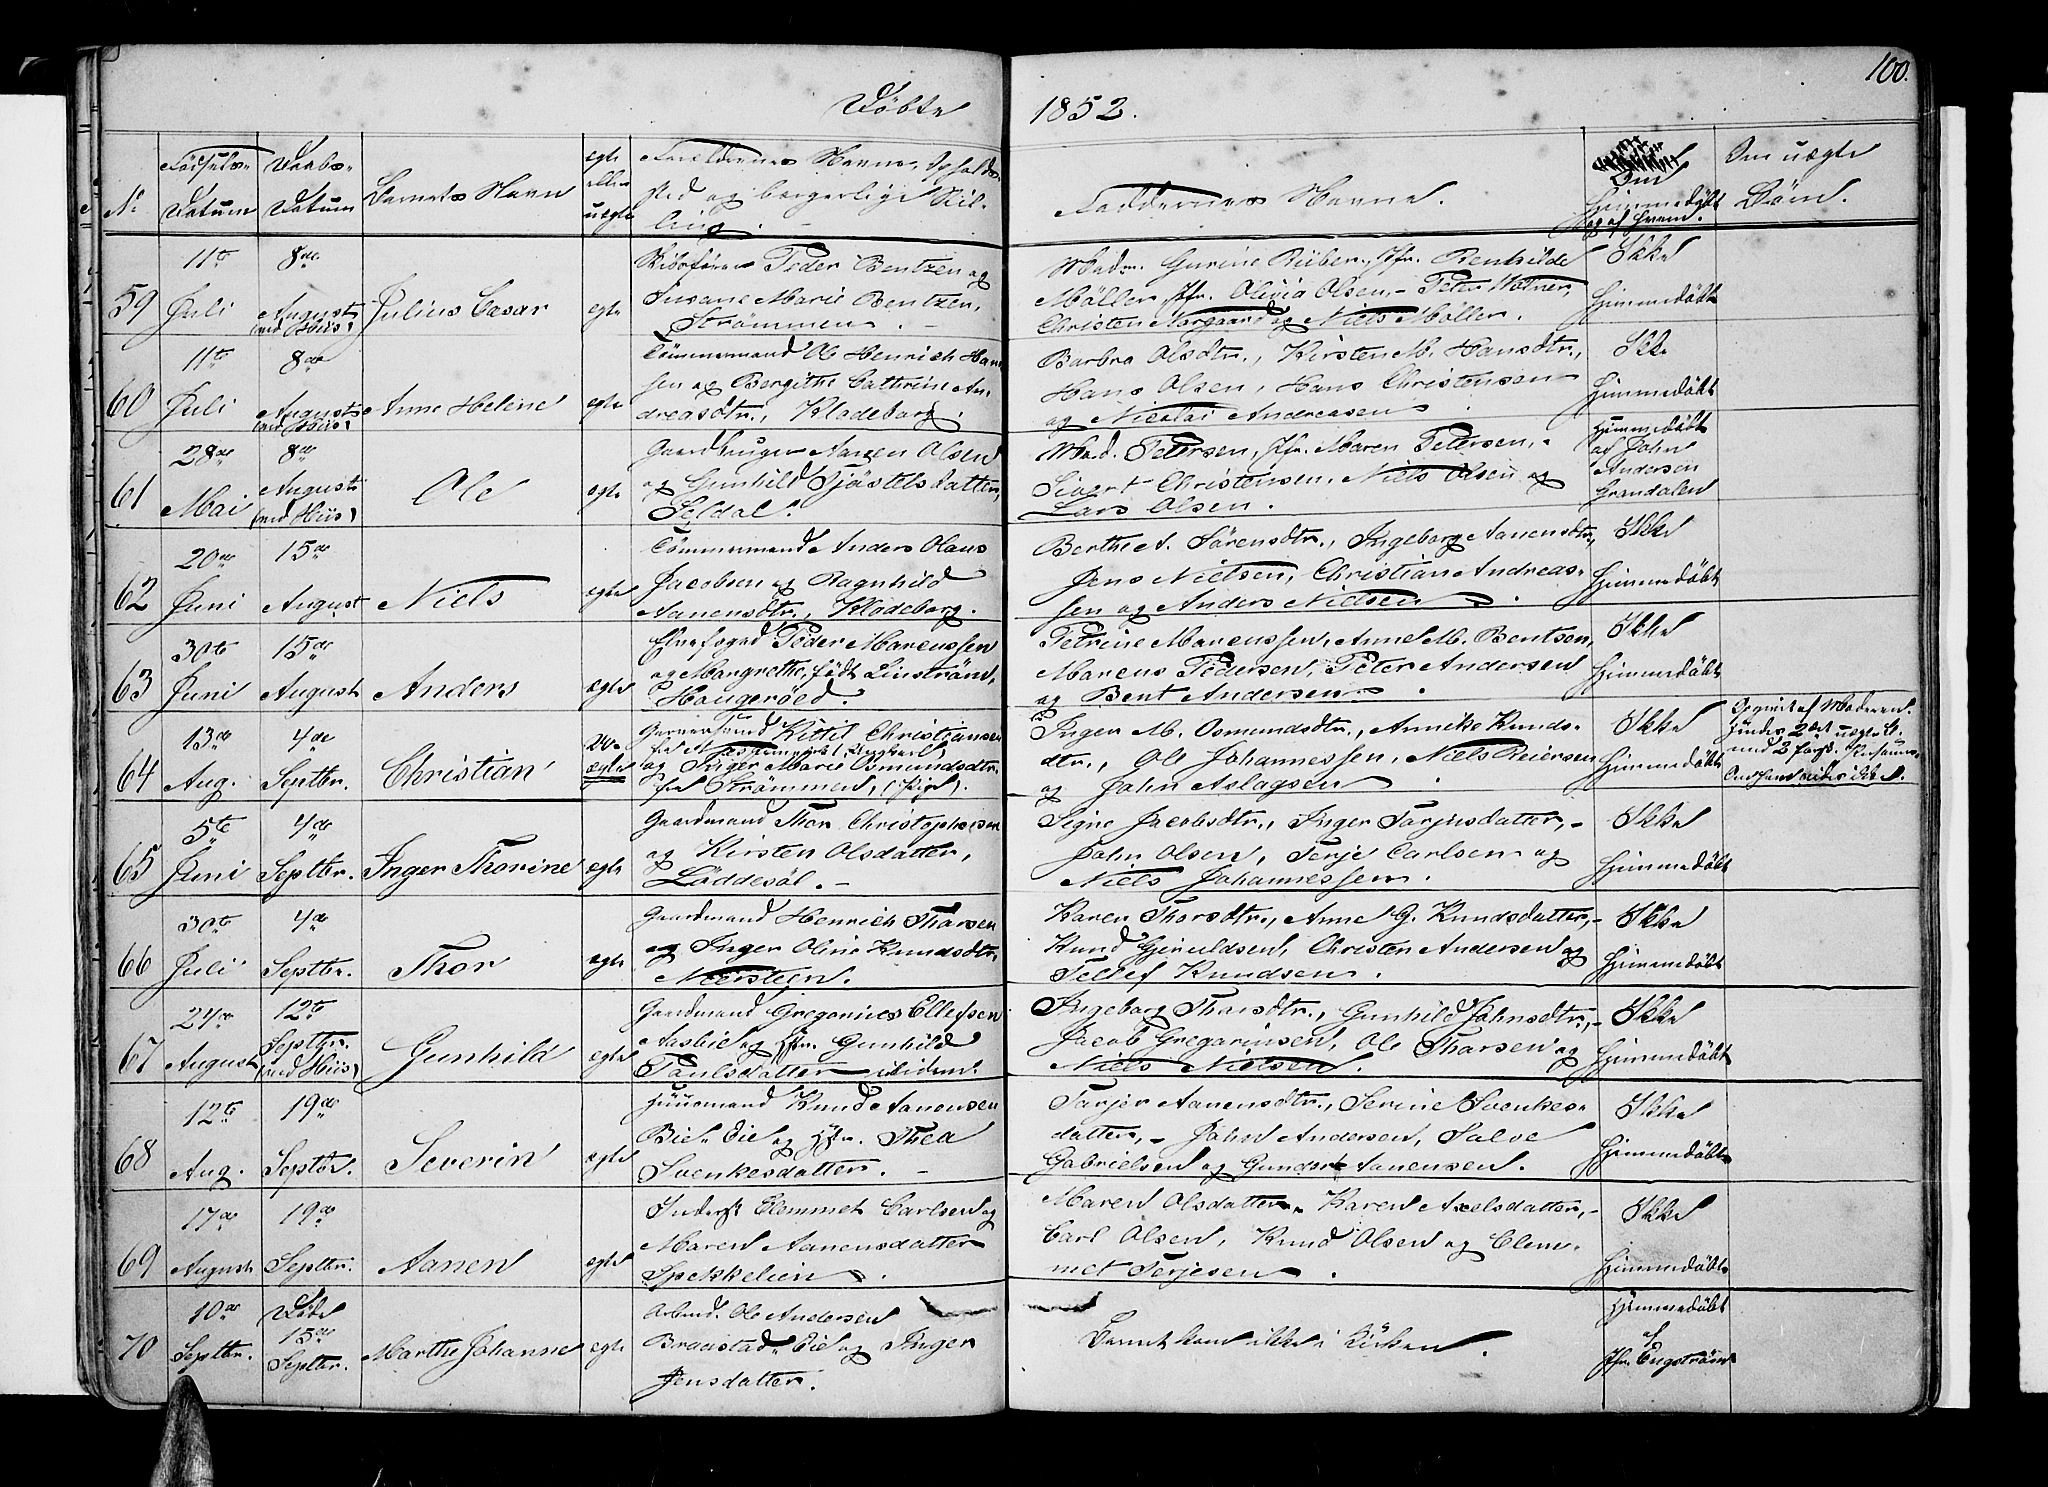 100.
Döbte
1852.
No
Födsels-
Datum
Daabs-
Datum
Barnets Navn
egte
eller
uegte
Forældrenes Navne, Opholds-
sted og borgerlige Stil-
ling.
Faddernes Navne.
Om
Hjemmedöbt
og af hvem.
Om uægte
Börn.
59
11te
Juli
8de
August
(ved Hiis)
Julius Cæsar
egte
Peder Bentzen og
Susane Marie Bentzen,
Strömmen.
Mad. Gurine Riiber, Jfr. Renhilde
Möller, Jfr. Olivia Olsen, - Peter
Christen Norgaard og Niels Möller.
Ikke
Hjemmedöbt
60
11te
Juli
8de
August
(ved Hiis)
Anne Helene
egte
Tömmermand Ole Henrich Han-
sen og Bergithe Cathrine An-
dreasdtr., Klodeborg.
Barbra Olsdtr., Kirsten M. Hansdtr.,
Hans Olsen, Hans Christensen
og Nicolai Andreasen.
Ikke
Hjemmedöbt
61
28de
Mai
8de
August
(ved Hiis)
Ole
egte
Gaardbruger Aanen Olsen
og Gunhild Tjöstelsdatter,
Seldal.
Mad. Petersen, Jfr. Maren Petersen, -
Sivert Christensen, Niels Olsen og
Lars Olsen.
Hjemmedöbt
af John
Andersen
Grændalen
62
20de
Juni
15de
August
Niels
egte
Tömmermand Anders Olaus
Jacobsen og Ragnhild
Aanensdtr., Klodeborg.
Berthe A. Sörensdtr., Ingeborg Aanensdtr.,
Jens Nielsen, Christian Andreas-
sen og Anders Nielsen.
Ikke
Hjemmedöbt
63
30te
Juni
15de
August
Anders
egte
Peder Marcussen
og Margrethe, født Linström,
Hougeröed.
Petrine Marcussen, Anne M. Bentsen,
Marcus Pedersen, Peter Andersen
og Bent Andersen.
Ikke
Hjemmedöbt
64
13de
Aug.
4de
Septbr.
Christian
Uægte
Kittil Christiansen
(Ungkarl)
og Inger Marie Osmundsdtr.
fra Strömmen, (Pige).
Inger M. Osmundsdtr., Annike Knuds-
dtr., Ole Johannessen, Niels Reiersen
og John Aslagsen
Ikke
Hjemmedöbt
Opgivet af Moderen.
65
5te
Juni
4de
Septbr.
Inger Thorine
egte
Gaardmand Thor Christophersen
og Kirsten Olsdatter,
Löddesöl. -
Signe Jacobsdtr., Inger Tarjusdatter, -
John Olsen, Terje Carlsen og
Niels Johannessen.
Ikke
Hjemmedöbt
66
30te
Juli
4de
Septbr.
Thor
egte
Gaardmand Henrich Thorsen
og Inger Oline Knudsdtr.
Nærsteen.
Karen Thorsdtr., Anne G. Knudsdatter, -
Knud Gjeruldsen, Christen Andersen og
Tellef Knudsen.
Ikke
Hjemmedöbt
67
24de
August
12te
Septbr.
(ved Hiis)
Gunhild
egte
Gaardmand Gregorius Ellefsen
Aasbie og Hstr. Gunhild
Paulsdatter ibidem.
Ingeborg Thorsdtr., Gunhild Johnsdtr., -
Jacob Gregoriusen, Ole Thorsen og
Niels Nielsen.
Ikke
Hjemmedöbt
68
12te
Aug.
19de
Septbr.
Severin
egte
Huusmand Knud Aanensen
Bie-Eie og Hstr. Thea
Svenkesdatter. -
Tarjer Aanensdtr., Serine Svenkes-
datter, - John Andersen, Salve
Gabrielsen og Gunder Aanensen.
Ikke
Hjemmedöbt
69
17de
August
19de
Septbr.
Aanen
egte
Inderst Clemmet Carlsen og
Maren Aanensdatter
Spekkelien.
Maren Olsdatter, Karen Axelsdatter, -
Carl Olsen, Knud Olsen og Clem-
met Terjesen.
Ikke
Hjemmedöbt
70
10de
Septbr.
Döde
15de
Septbr.
Marthe Johanne
egte
Arbmd. Ole Andersen
Braastad-Eie og Inger
Jensdatter.
Barnet kom ikke i Kirken.
Hjemmedöbt
af
Jfr. Engström